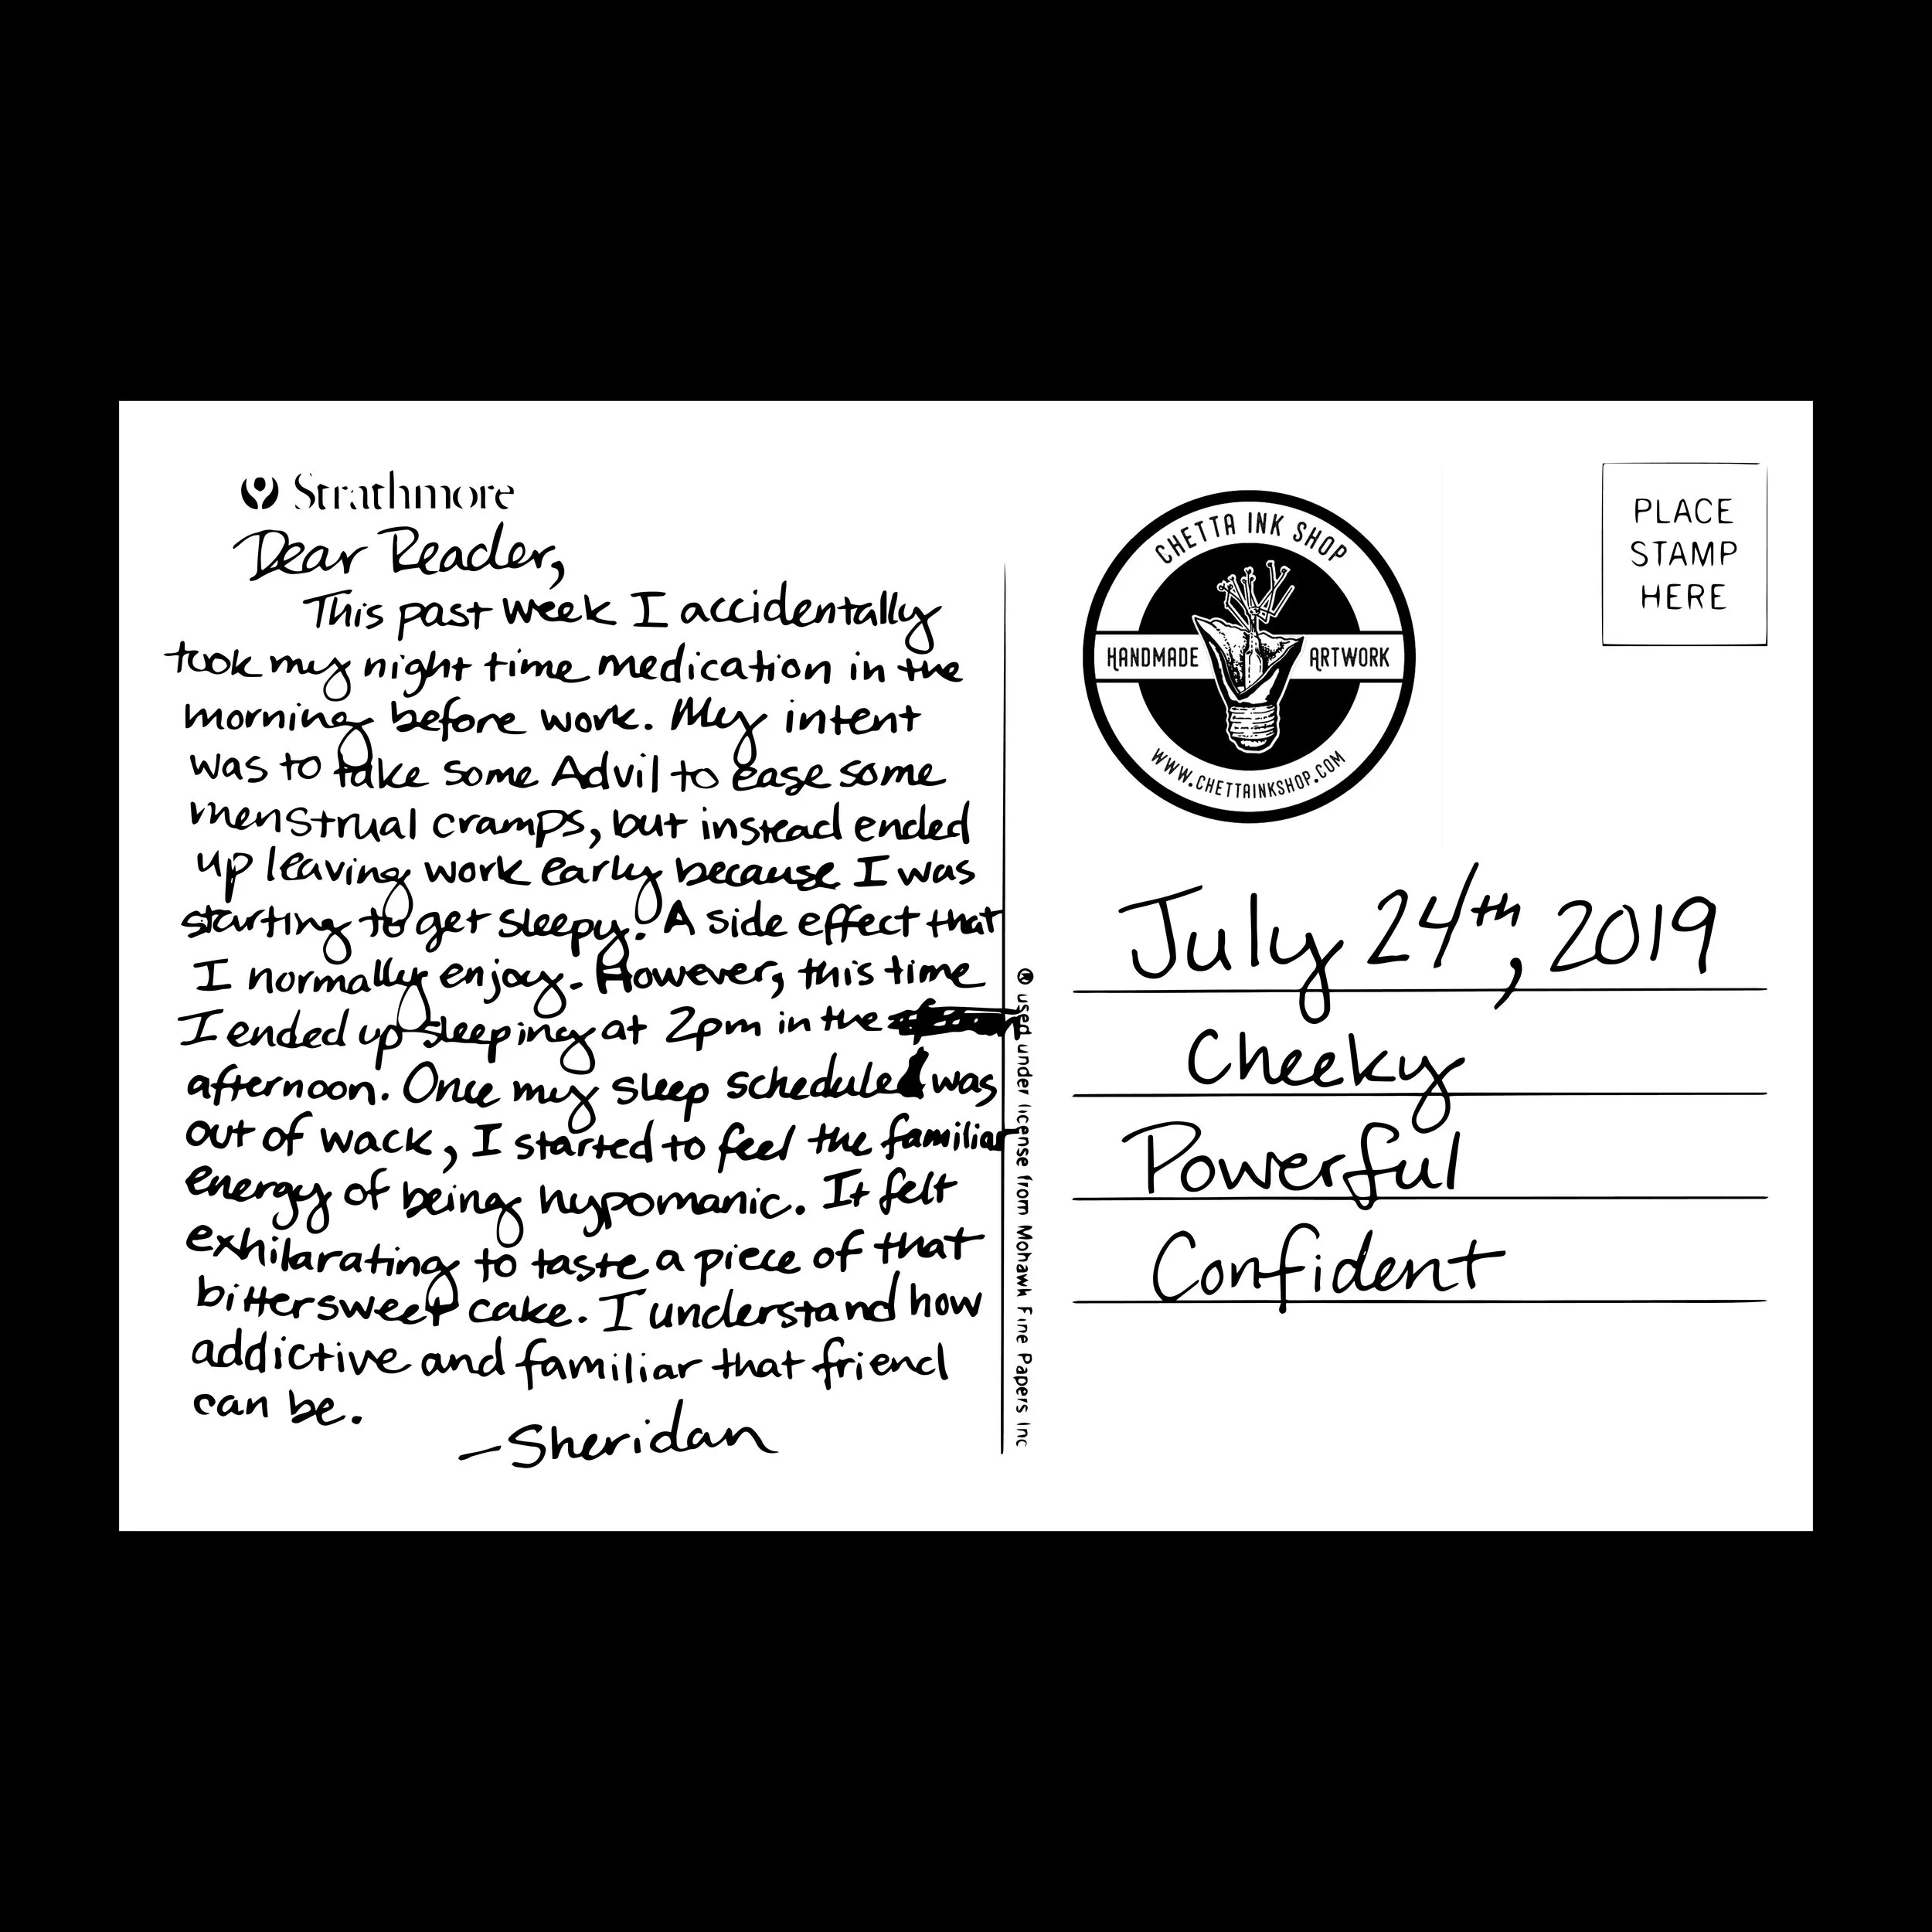 Strathmore
Dear Reader,
This past week I accidentally
took my night time medication in the
morning before work. My intent
was to take some Advil to ease some
menstrual cramps, but instead ended
up leaving work early because I was
starting to get sleepy. A side effect that
I normally enjoy. However, this time
I ended up sleeping at 2pm in the
afternoon. Once my sleep schedule was
out of wack, I started to feel the familiar
energy of being hypomanic. It felt
exhilarating to taste a piece of that
bittersweet cake. I understand how
addictive and familiar that friend
can be.
—Sheridan
® used under license from Mohawk Fine Papers Inc
CHETTA INK SHOP
HANDMADE ARTWORK
WWW.CHETTAINKSHOP.COM
PLACE
STAMP
HERE
July 24th, 2019
Cheeky
Powerful
Confident